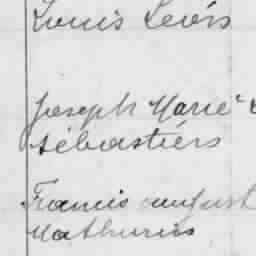 Louis Levis
Joseph Marie
Sébastiens
Francis august
Mathurins